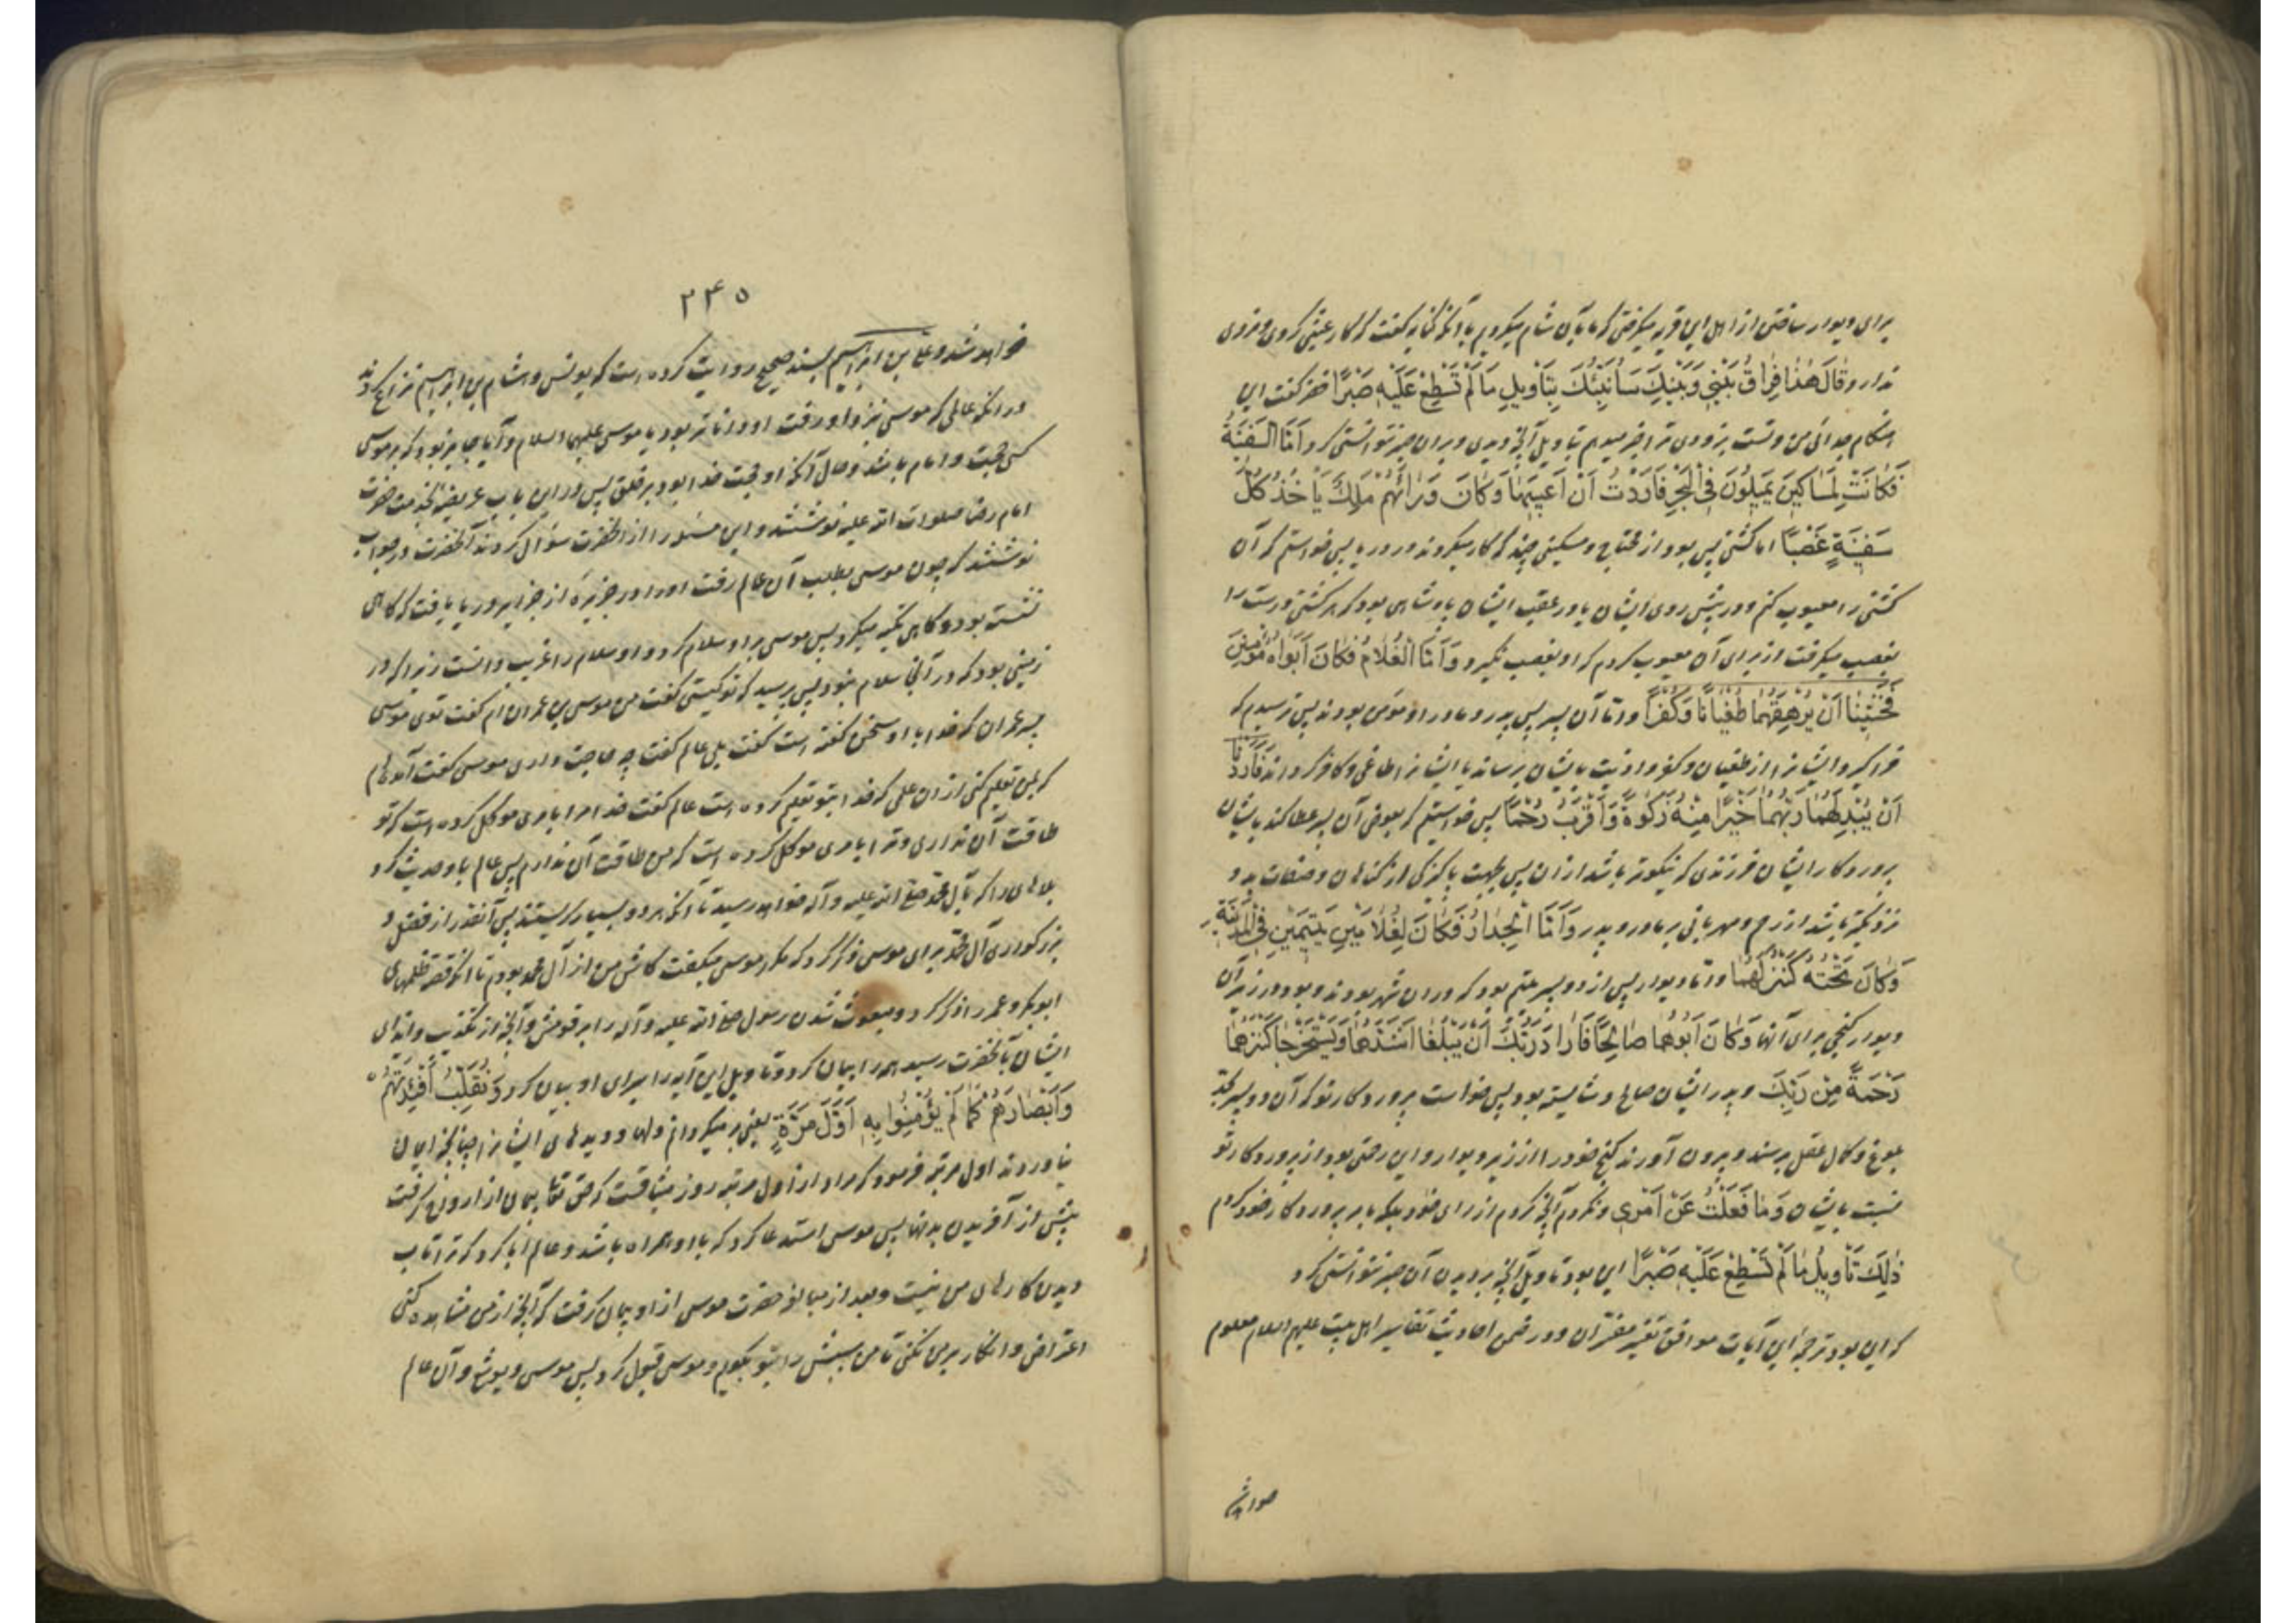 برای دیوار ساختن از اهل این قریه میگرفتی که ما بآن شام میکردیم یا آنکه کنایه گفت که کار عبثی کردی و مزدی
ندارد وقَالَ هٰذَا فِرَاقُ بَيْنِي وَبَيْنِكَ سَأُنَبِّئُكَ بِتَأْوِيلِ مَا لَمْ تَسْطِعْ عَلَيْهِ صَبْرًا خضر گفت این
هنگام جدائی من و تست بزودی ترا خبر میدهم بتاویل آنچه دیدی و بران صبر نتوانستی کرد اَمَّا السَّفِينَةُ
فَكَانَتْ لِمَسَاكِينَ يَعْمَلُونَ فِي الْبَحْرِ فَأَرَدْتُ أَنْ أَعِيبَهَا وَكَانَ وَرَائَهُمْ مَلِكٌ يَأْخُذُ كُلَّ
سَفِينَةٍ غَصْبًا اما کشتی پس بود از محتاج و مسکینی چند که کار میکردند در دریا پس خواستم که آن
کشتی را معیوب کنم و در پیش روی ایشان یا در عقب ایشان پادشاهی بود که هر کشتی درست را
بغصب میگرفت از برای آن معیوب کردم که او بغصب نگیرد وَأَمَّا الْغُلَامُ فَكَانَ أَبَوَاهُ مُؤْمِنَيْنِ
فَخَشِينَا أَنْ يُرْهِقَهُمَا طُغْيَانًا وَكُفْرًا و امّا آن پسر پس پدر و مادر او مؤمن بودند پس ترسیدم که
فراگیرد ایشانرا از طغیان و کفر و اذیت بایشان برساند یا ایشانرا طاغی و کافر گرداند فَأَرَدْنَا
أَنْ يُبْدِلَهُمَا رَبُّهُمَا خَيْرًا مِنْهُ زَكٰوةً وَأَقْرَبَ رُحْمًا پس خواستیم که بعوض آن پسر عطا کند بایشان
پروردگار ایشان فرزندی که نیکوتر باشد ازان پس بجهت پاکیزکی از کناهان و صفات بد و
نزدیکتر باشد از رحم و مهربانی بر مادر و پدر وَأَمَّا الْجِدَارُ فَكَانَ لِغُلَامَيْنِ يَتِيمَيْنِ فِي الْمَدِينَةِ
وَكَانَ تَحْتَهُ كَنْزٌ لَهُمَا و امّا دیوار پس از دو پسر یتیم بود که دران شهر بودند و بود در زیر آن
دیوار گنجی برای آنها وَكَانَ أَبُوهُمَا صَالِحًا فَأَرَادَ رَبُّكَ أَنْ يَبْلُغَا أَشُدَّهُمَا وَيَسْتَخْرِجَا كَنْزَهُمَا
رَحْمَةً مِنْ رَبِّكَ و پدر ایشان صالح و شایسته بود پس خواست پروردگار تو که آن دو پسر بحدّ
بلوغ و کمال عقل برسند و بیرون آورند گنج خود را از زیر دیوار و این رحمتی بود از پروردگار تو
نسبت بایشان وَمَا فَعَلْتُهُ عَنْ أَمْرِي و نکردم آنچه کردم از رای خود بلکه بامر پروردگار خود کردم
ذٰلِكَ تَأْوِيلُ مَا لَمْ تَسْطِعْ عَلَيْهِ صَبْرًا این بود تاویل آنچه بر دیدن آن صبر نتوانستی کرد
که این بود ترجمهٔ این آیات موافق تفسیر مفسّران و در ضمن احادیث تفاسیر اهل بیت علیهم السلام معلوم
خواهد
۲۴۵
خواهد شد و علی بن ابراهیم بسند صحیح روایت کرده است که یونس و هشام بن ابراهیم نزاع کردند
در آنکه عالمی که موسی نزد او رفت او داناتر بود یا موسی علیهما السلام و آیا جایز بود که بر موسی
کسی حجت و امام باشد و حال آنکه او حجت خدا بود بر خلق پس در این باب عریضه بخدمت حضرت
امام رضا صلوات الله علیه نوشتند و این مسئله را از آنحضرت سؤال کردند آنحضرت در جواب
نوشتند که چون موسی بطلب آن عالم رفت او را در جزیرهٔ از جزایر دریا یافت که گاهی
نشسته بود و گاهی تکیه میکرد پس موسی بر او سلام کرد و او سلام را غریب دانست زیرا که در
زمینی بود که در آنجا سلام نبود پس پرسید که تو کیستی گفت من موسی بن عمران ام گفت توی موسی
پسر عمران که خدا با او سخن گفته است گفت بلی عالم گفت چه حاجت داری موسی گفت آمده‌ام
که بمن تعلیم کنی ازان علمی که خدا بتو تعلیم کرده است عالم گفت خدا مرا بامری موکل کرده است که تو
طاقت آن نداری و ترا بامری موکل کرده است که من طاقت آن ندارم پس عالم باو حدیث کرد
بلاهای را که بآل محمّد صلی الله علیه و آله خواهد رسید تا آنکه هر دو بسیار گریستند پس آنقدر از فضل و
بزرگواری آل محمّد برای موسی ذکر کرد که مکرر موسی میگفت کاش من از آل محمد بودم تا آنکه قصهٔ ظلمهای
ابوبکر و عمر را ذکر کرد و مبعوث شدن رسول صلی الله علیه و آله را بر قومش و آنچه از تکذیب و ایذای
ایشان بآنحضرت رسید همه را بیان کرد و تاویل این آیه را برای او بیان کرد وَنُقَلِّبُ أَفْئِدَتَهُمْ
وَأَبْصَارَهُمْ كَمَا لَمْ يُؤْمِنُوا بِهِ أَوَّلَ مَرَّةٍ یعنی بر میگردانم دلها و دیدهای ایشانرا چنانچه ایمان
نیاوردند اول مرتبه فرمود که مراد از اول مرتبه روز میثاقست که حق تعالی پیمان از ارواح گرفت
پیش از آفریدن بدنها پس موسی استدعا کرد که با او همراه باشد و عالم ابا کرد که ترا تاب
دیدن کارهای من نیست و بعد از مبالغه حضرت موسی از او پیمان گرفت که آنچه از من مشاهده کنی
اعتراض و انکار بر من نکنی تا من سببش را بتو بگویم و موسی قبول کرد پس موسی و یوشع و آن عالم